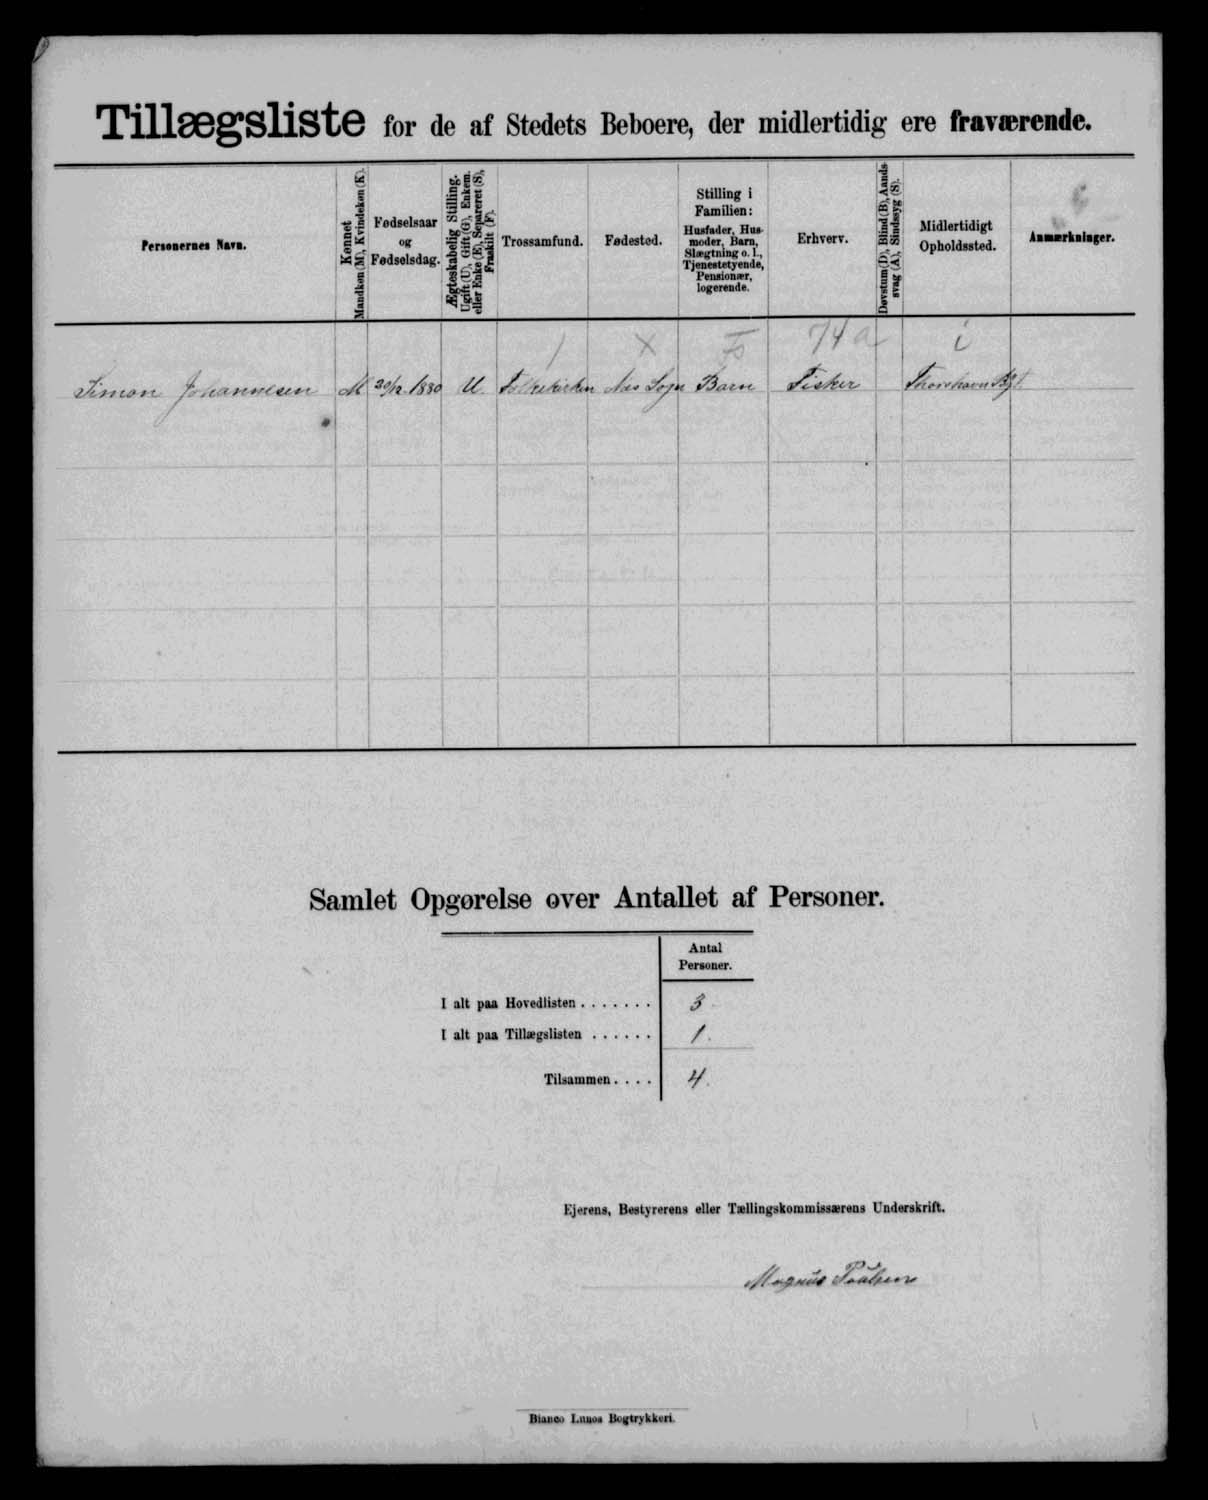 Tillægsliste for de af Stedets Beboere, der midlertidig ere fraværende.
Personernes Navn.
Kønnet
Mandkøn (M), Kvindekøn (K).
Fødselsaar
og
Fødselsdag.
Ægteskabelig Stilling.
Ugift (U), Gift (G), Enkem.
eller Enke (E), Separeret (S),
Fraskilt (F).
Trossamfund.
Fødested.
Stilling i
Familien:
Husfader, Hus-
moder, Barn,
Slægtning o. l.,
Tjenestetyende,
Pensionær,
logerende.
Erhverv.
Døvstum (D), Blind (B), Aands-
svag (A), Sindssyg (S).
Midlertidigt
Opholdssted.
Anmærkninger.
74 a
Simon Johannesen M 30/12 1880 U. Folkekirken Næs Sogn Barn Fisker Thorshavn Bgt.
Samlet Opgørelse over Antallet af Personer.
Antal
Personer.
I alt paa Hovedlisten . . . . . . . 3
I alt paa Tillægslisten . . . . . . 1.
Tilsammen . . . . 4.
Ejerens, Bestyrerens eller Tællingskommissærens Underskrift.
Magnus Poulsen
Bianco Lunos Bogtrykkeri.